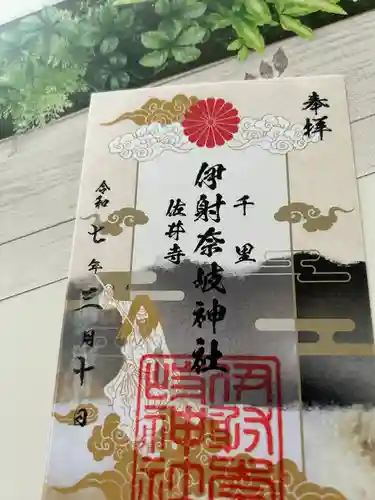 奉拝
千里
伊射奈岐神社
佐井寺
令和七年三月十日